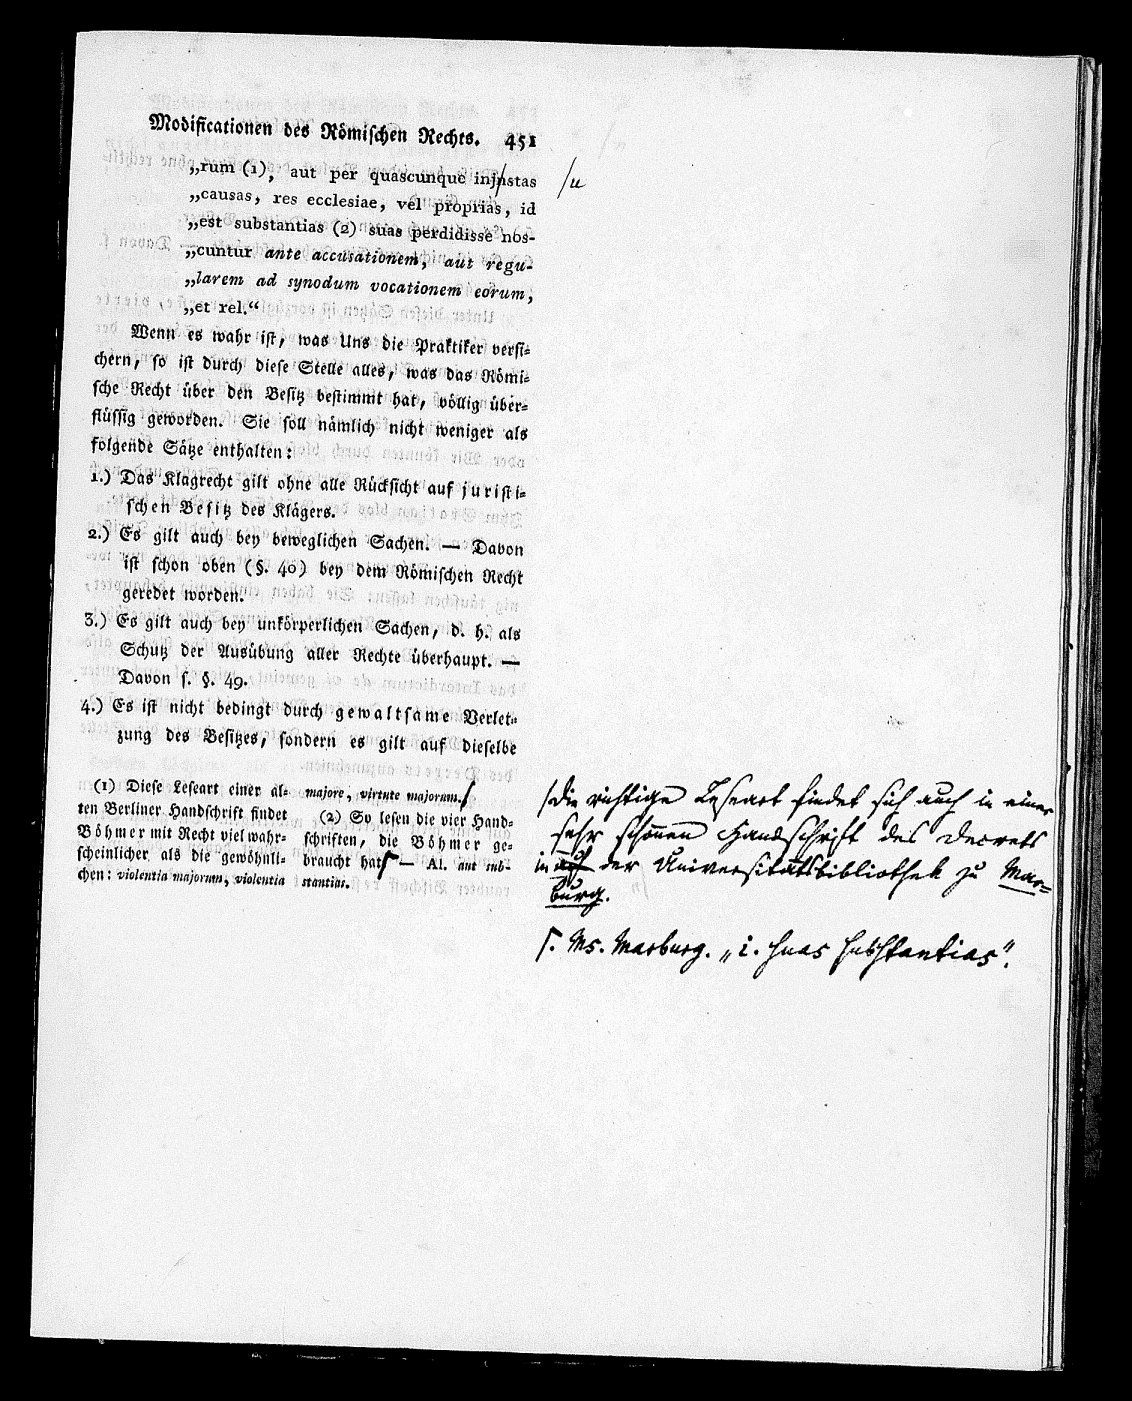 Modificationen des Römischen Rechts. 451
„rum (1), aut per quascunque injnstas /u
„causas, res ecclesiae, vel proprias, id
„est substantias (2) suas perdidisse nos-
„cuntur ante accusationem, aut regu-
„larem ad synodum vocationem eorum,
„et rel.“
Wenn es wahr ist, was Uns die Praktiker versi-
chern, so ist durch diese Stelle alles, was das Römi-
sche Recht über den Besitz bestimmt hat, völlig über-
flüssig geworden. Sie soll nämlich nicht weniger als
folgende Sätze enthalten:
1.) Das Klagrecht gilt ohne alle Rücksicht auf juristi-
schen Besitz des Klägers.
2.) Es gilt auch bey beweglichen Sachen. — Davon
ist schon oben (§. 40) bey dem Römischen Recht
geredet worden.
3.) Es gilt auch bey unkörperlichen Sachen, d. h. als
Schutz der Ausübung aller Rechte überhaupt. —
Davon s. §. 49.
4.) Es ist nicht bedingt durch gewaltsame Verlet-
zung des Besitzes, sondern es gilt auf dieselbe
(1) Diese Leseart einer al-
ten Berliner Handschrift findet
Böhmer mit Recht viel wahr-
scheinlicher als die gewöhnli-
chen: violentia majorum, violentia
majore, virtute majorum.
(2) So lesen die vier Hand-
schriften, die Böhmer ge-
braucht hat — Al. aut sub-
stantias.
die richtige Leseart findet sich auch in einer
sehr schönen Handschrift des Decrets
in auf der Universitätsbibliothek zu Mar-
burg.
Ms. Marburg. „i. suas substantias“.